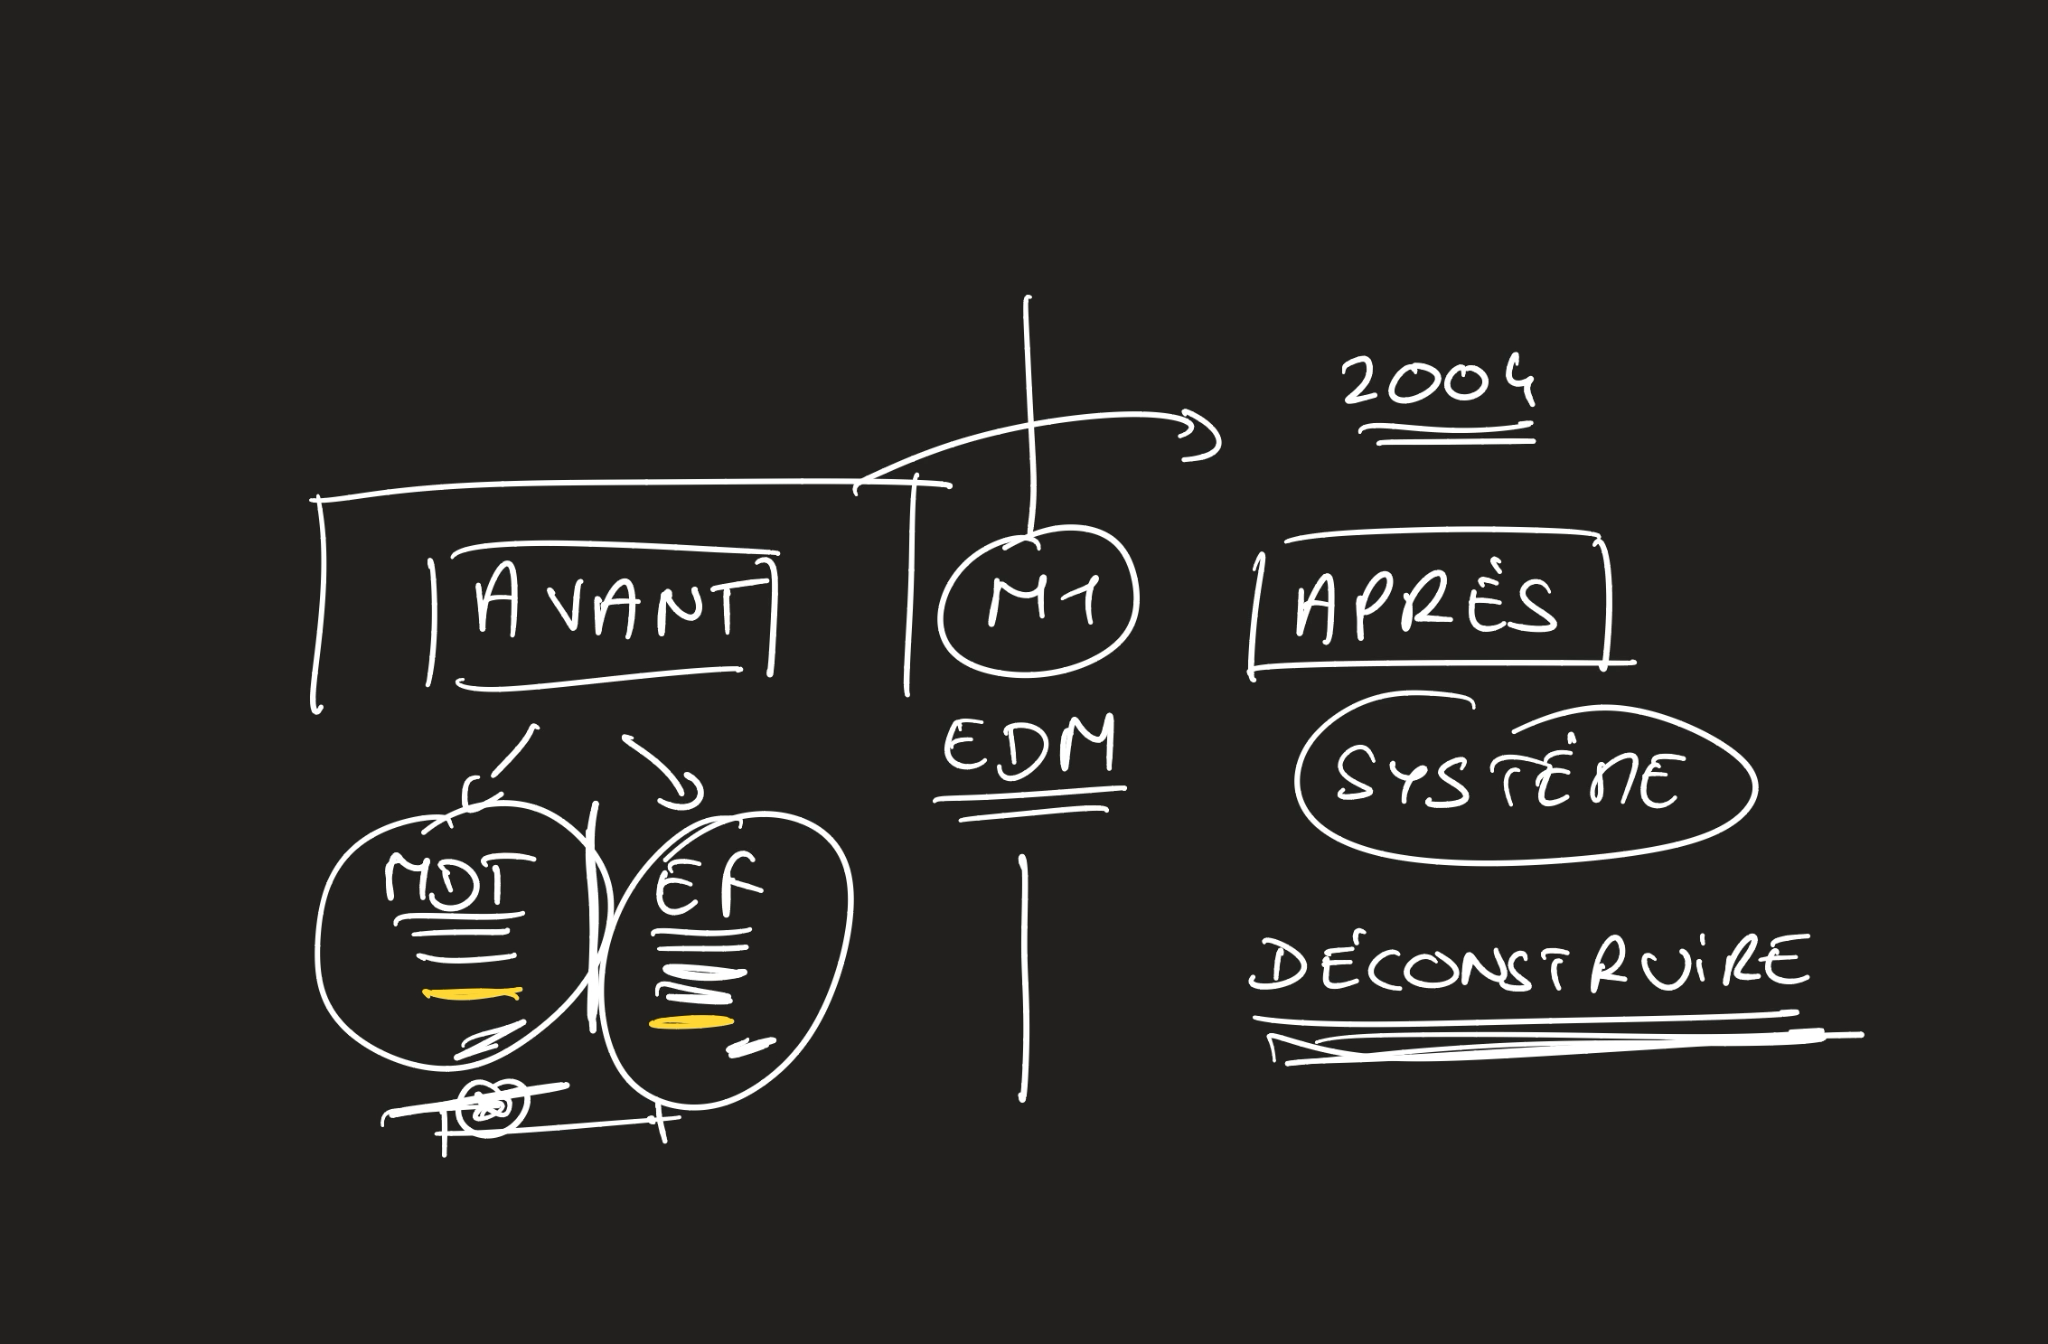 2004
AVANT
M1
APRÈS
EDM
SYSTÈME
MDT
EF
DÉCONSTRUIRE